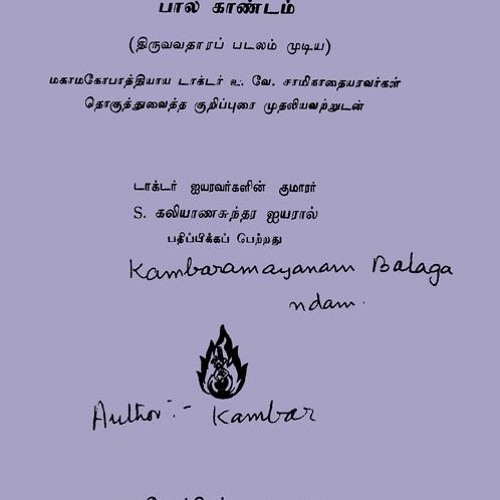 பால காண்டம்
(திருவவதாரப் படலம் முடிய)
மகாமகோபாத்தியாய டாக்டர் உ. வே. சாமிநாதையரவர்கள்
தொகுத்துவைத்த குறிப்புரை முதலியவற்றுடன்
டாக்டர் ஐயரவர்களின் குமாரர்
S. கலியாணசுந்தர ஐயரால்
பதிப்பிக்கப் பெற்றது
Kambaramayanam Balaga
ndam.
Author:- Kambar